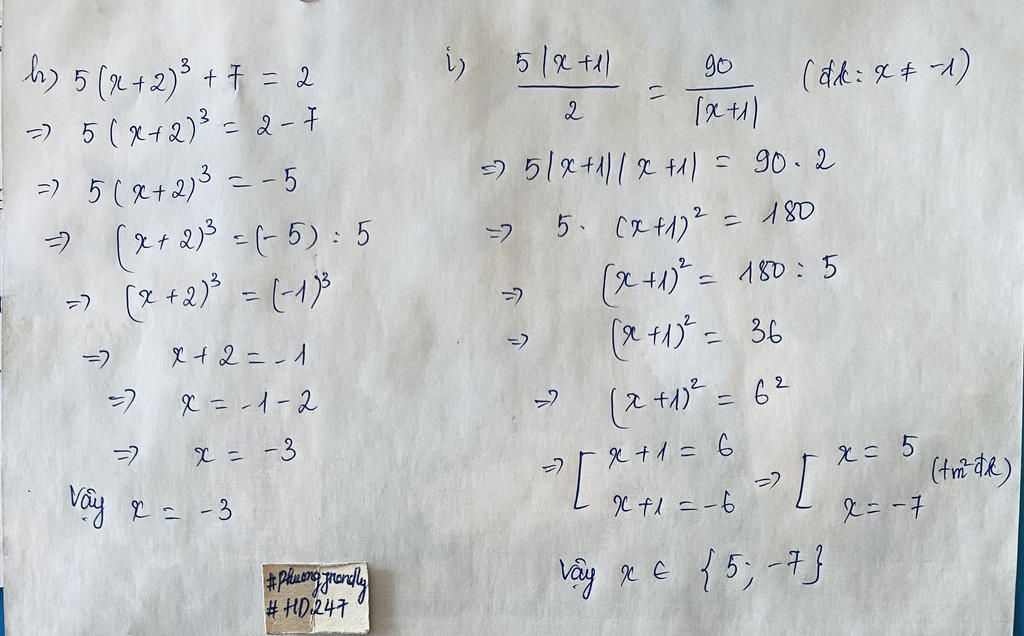 h) 5(x+2)³ + 7 = 2
=> 5(x+2)³ = 2 - 7
=> 5(x+2)³ = -5
=> (x+2)³ = (-5) : 5
=> (x+2)³ = (-1)³
=> x + 2 = -1
=> x = -1 - 2
=> x = -3
Vậy x = -3
i) 5|x+1| / 2 = 90 / |x+1| (đk: x ≠ -1)
=> 5|x+1||x+1| = 90 . 2
=> 5 . (x+1)² = 180
=> (x+1)² = 180 : 5
=> (x+1)² = 36
=> (x+1)² = 6²
=> [ x+1 = 6 => [ x = 5 (tm² đk)
x+1 = -6 x = -7
Vậy x ∈ {5; -7}
# HD247